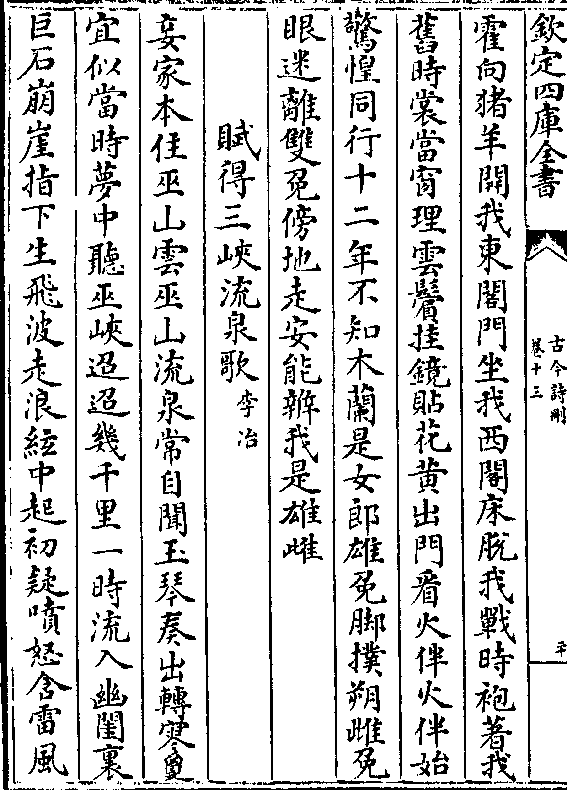 欽定四庫全書
古今詩刪
卷十三
平
霍向豬羊開我東閣門坐我西閣床脫我戰時袍著我
舊時裳當窗理雲鬢挂鏡貼花黃出門看火伴火伴始
驚惶同行十二年不知木蘭是女郎雄兔脚撲朔雌兔
眼迷離雙兔傍地走安能辨我是雄雌
賦得三峽流泉歌 李冶
妾家本住巫山雲巫山流泉常自聞玉琴奏出轉寥夐
宜似當時夢中聽巫峽迢迢幾千里一時流入幽閨裏
巨石崩崖指下生飛波走浪絃中起初疑噴怒含雷風